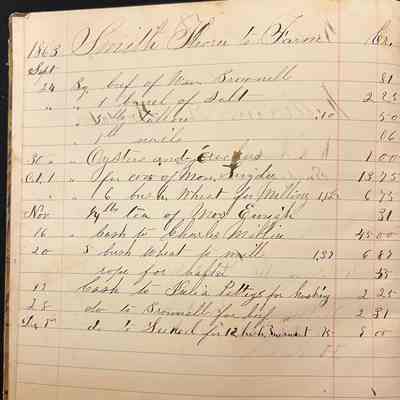 1863 Smith Thorn to Farm Cr.
Sept
24 By beef of Wm Brownell 81
" " 1 barrel of Salt 2 25
" " 5 lb tallow .10 50
" 1 lb nails 06
30 " Oysters and crackers 1 00
Oct. 1 " for cow of Wm Snyder 13.75
" 6 bush Wheat for Milling 6 75
Nov ¼ lb tea of Mrs 31
16 " Cash to Charles Millis 45 00
20 5 bush Wheat to mill 137 6 87
rope for halter 45
12 Cash to Julia Pettys for husking 2 25
28 do to Brownell for beef 2 81
Dec 1st do to for 12 bush 8 00